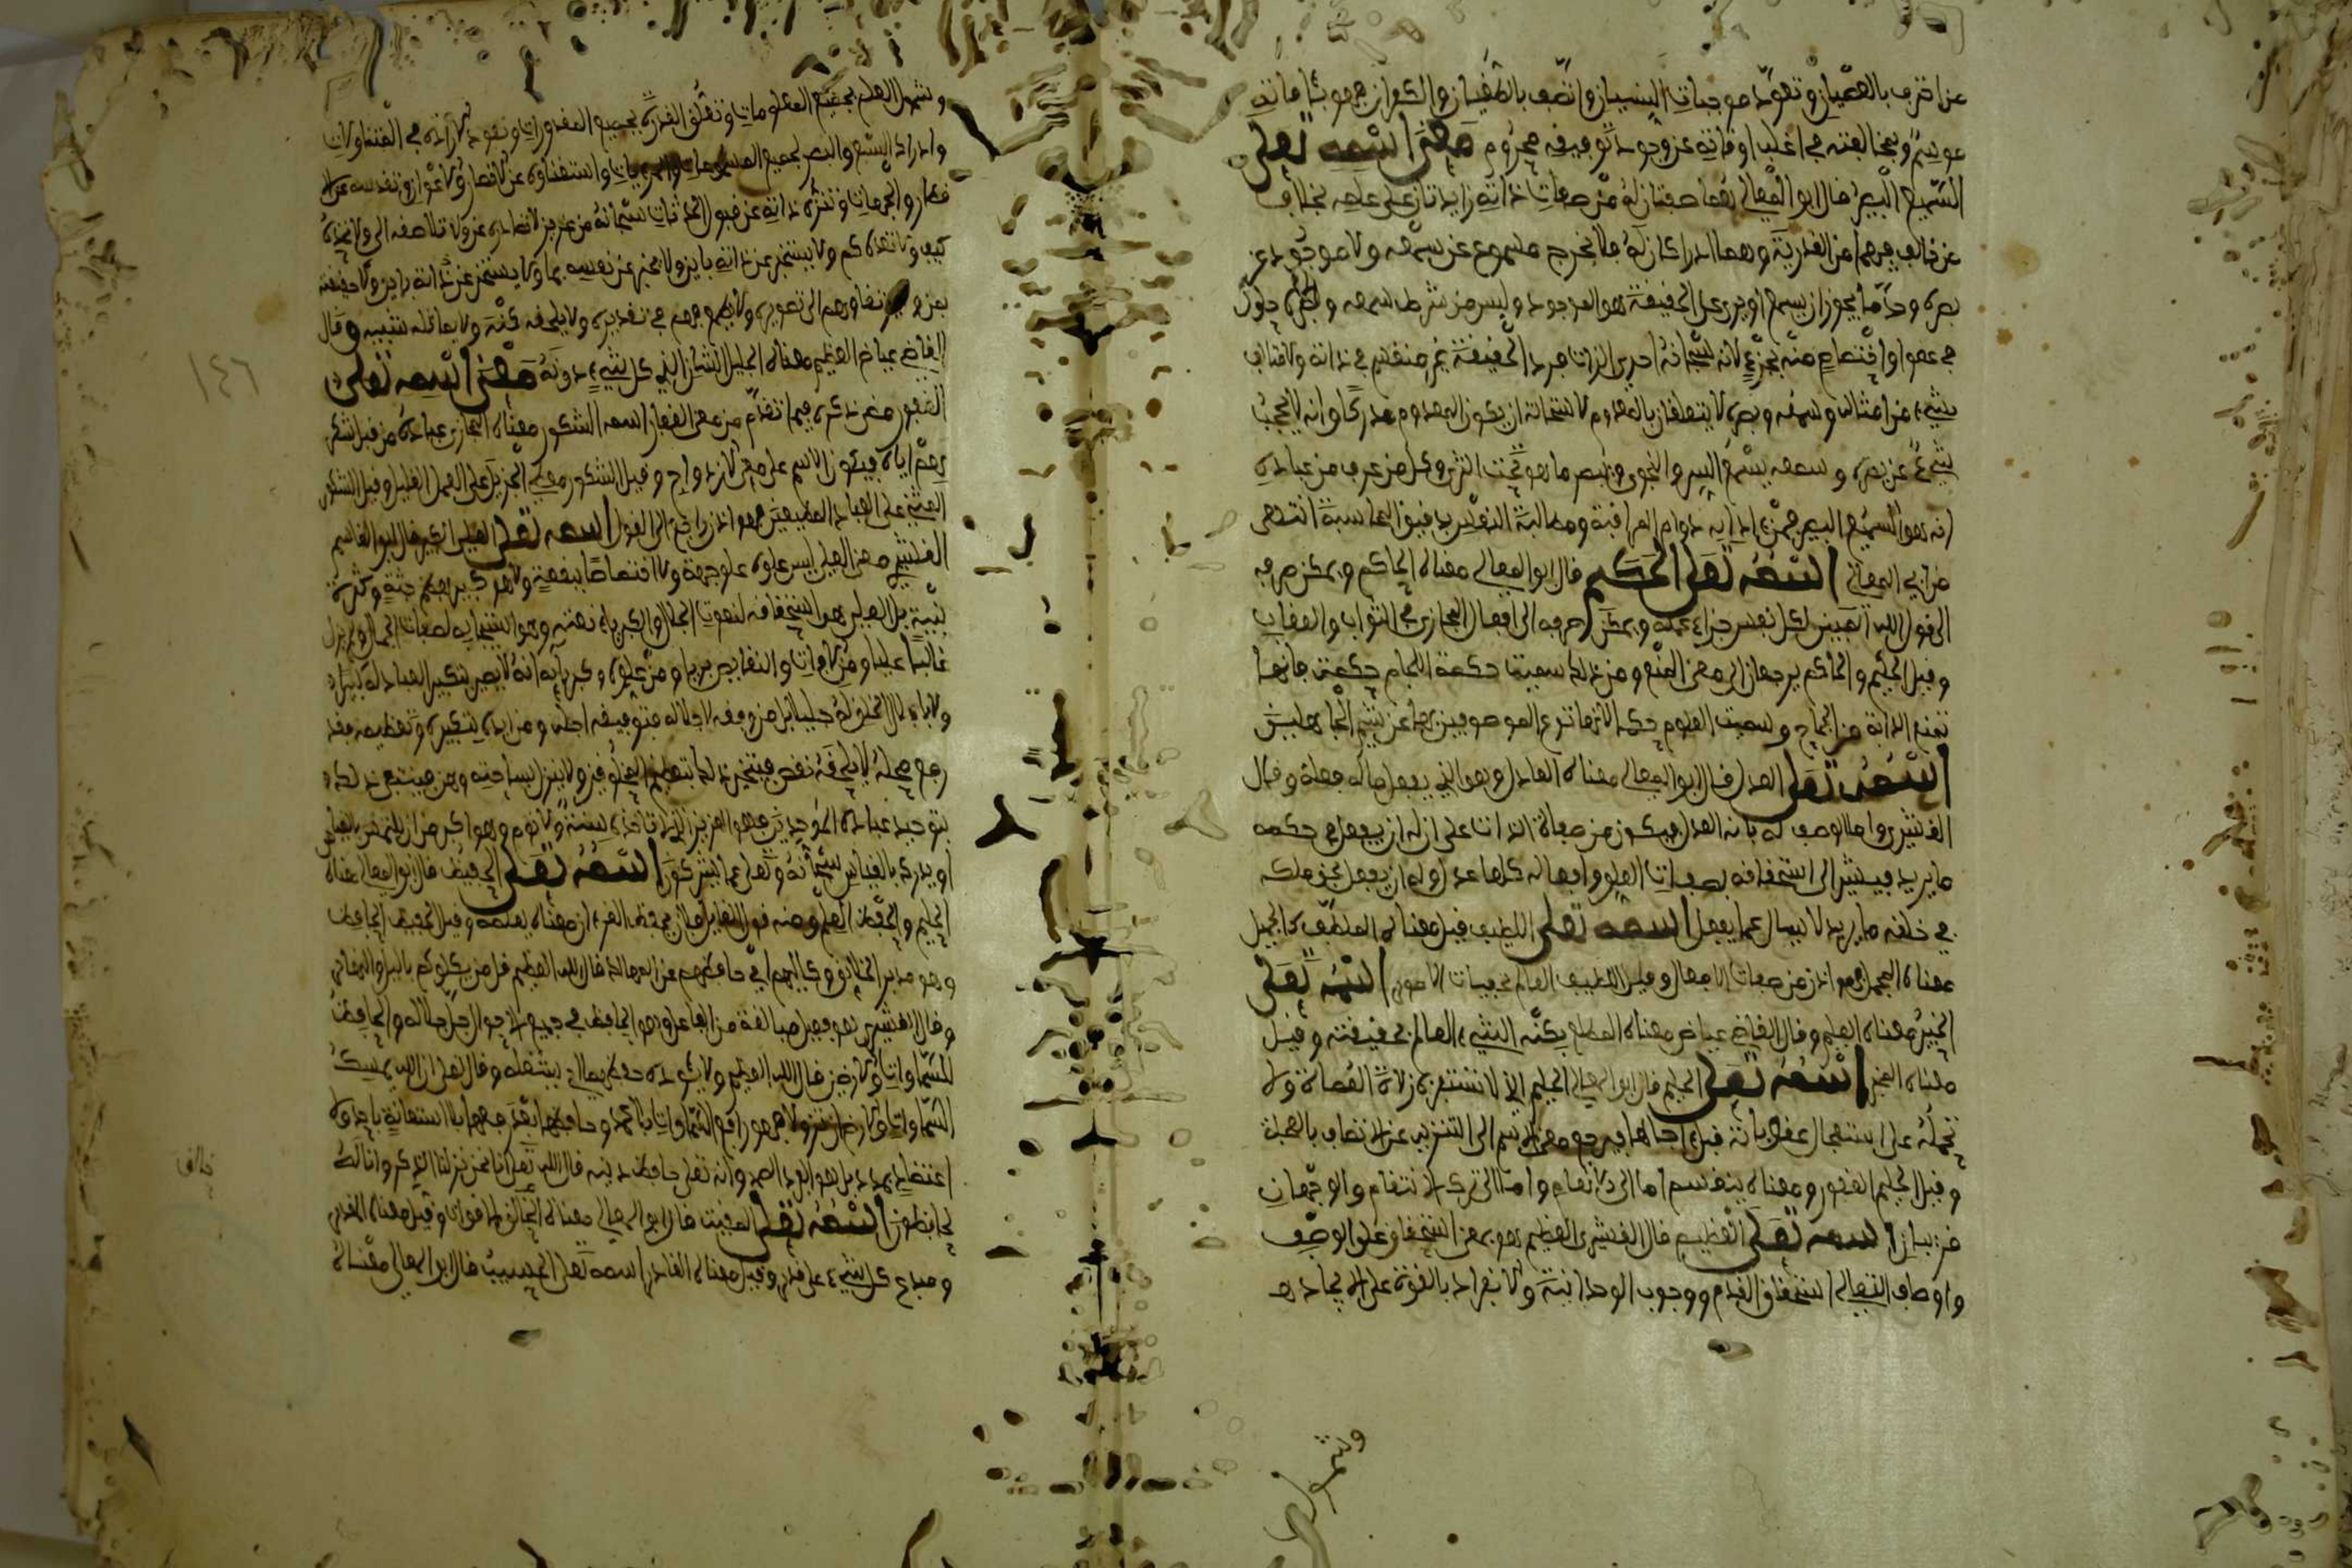 عن اقترف بالعصيان وتعود موجبات النسيان واتصف بالطغيان والكفران فهو بئا فاته
موسوم وبمخالفته في اغلب اوقاته عن وجود توفيقه محروم معنى اسمه تعلى
السميع البصير قال ابو المعالي هما صفتان له من صفات ذاته زايدتان على علمه بخلاف
من خالف فيهما من القدرية وهما ادراكان له فلا يخرج مسموع عن سمعه ولا موجود عن
بصره وكل ما يجوز ان يسمع او يرى على الحقيقة هو الموجود وليس من شرط سمعه وبصره حلول
في عضو او اختصاص منه بجزء لانه سبحانه احدي الذات فرد الحقيقة غير منقسم في ذاته ولا
بشيء من امثاله وسمعه وبصره لا يتعلقان بالمعدوم لاستحالة ان يكون المعدوم مدركا وانه لا يحجب
شيء عن بصره وسمعه يسمع السر والنجوى ويبصر ما هو تحت الثرى وكل من عرف من عباده
انه هو السميع البصير فمن ادابه دوام المراقبة ومطالبة النفس بدقيق المحاسبة انتهى
من ابي المعالي اسمه تعلى الحكم قال ابو المعالي معناه الحاكم ويمكن صرفه
الى قول الله المبين لكل نفس جزاء عمله ويمكن صرفه الى افعال المجازي في الثواب والعقاب
وقيل الحكم والحاكم يرجعان الى معنى المنع ومن ذلك سميت حكمة اللجام حكمة فانها
تمنع الدابة من الجماح وسميت العلوم حكما لانها تزع الموصوفين بها عن شيم الجاهلين
اسمه تعلى العدل قال ابو المعالي معناه العادل وهو الذي يفعل ما له فعله وقال
القشيري واما الوصف له بانه العدل فيكون من صفات الذات على ان له ان يفعل في حكمه
ما يريد فيشير الى استحقاقه لصفات العلو وافعاله كلها عدل وله ان يفعل بحق ملكه
في خلقه ما يريد لا يسال عما يفعل اسمه تعلى اللطيف قيل معناه الملطف كالجميل
معناه المجمل فهو اذن من صفات الافعال وقيل اللطيف العالم بخفيات الامور اسمه تعلى
الخبير معناه العليم وقال القاضي عياض معناه المطلع بكنه الشيء العالم بحقيقته وقيل
معناه المخبر اسمه تعلى الحليم قال ابو المعالي الحليم الذي لا تستفزه زلات العصاة ولا
تحمله على استعجال عقوباته قبل اجالها فيرجع معنى الاسم الى التنزيه عن الاتصاف بالعجلة
وقيل الحليم الغفور ومعناه ينقسم اما الى الانعام واما الى ترك الانتقام والوجهان
قريبان اسمه تعلى العظيم قال القشيري العظيم هو بمعنى استحقاق علو الوصف
واوصاف التعالي استحقاق القدم ووجوب الوحدانية والانفراد بالقوة على الايجاد
وشمول
وشمول العلم بجميع المعلومات وتعلق القدرة بجميع المقدورات ونفوذ الارادة في المتناولات
وادراك السمع والبصر لجميع المسموعات والمرئيات واستغناؤه عن الانصار والاعوان وتقدسه عن الا
قطار والجهات وتنزه ذاته عن قبول الحادثات سبحانه من عزيز لا تصادره عن ولا تلاصقه الى ولا تحده
كيف ولا تعده كم ولا يستخبر عن ذاته باين ولا يخبر عن نفسه بما
معناه الجليل الشان الذي كل شيء دونه معنى اسمه تعلى
الغفور مضى ذكره فيما تقدم من معنى الغفار اسمه الشكور معناه المجازي عباده من قبل شكر
هم اياه فيكون الاسم على معنى الازدواج وقيل الشكور معطي الجزيل على العمل القليل وقيل الشكور
المثني على العباد المطيعين فهو اذن راجع الى القول اسمه تعلى العلي الكبير قال ابو القاسم
القشيري معنى العلي ليس علوه علو جهة ولا اختصاصا ببقعة ولا هو كبير بعظم جثة وكثرة
بنية بل العلو هو استحقاقه لنعوت الجلال والكبرياء نعته وهو استيجابه لصفات الجمال لم يزل
غالبا عليا ومن الافات والنقايص بريا ومن علوه وكبريايه انه لا يصير بتكبير العباد له كبيرا
ولا باجلال الخلق له جليلا بل من وفقه لاجلاله فبتوفيقه اجله ومن ايده لتكبيره وتعظيمه فقد
رفع محله لا يلحقه نقص فينجبر ذلك بتعظيم المخلوقين ولا ينزل بساحته وهن فينتفي ذلك
بتوحيد عباده الموحدين فهو العزيز الذي لا تاخذه سنة ولا نوم وهو اكبر من ان
او يدرك بالقياس سبحانه وتعلى عما يشركون اسمه تعلى الحفيظ قال ابو المعالي معناه
العليم والحفظ العلم ومنه قول القايل فلان يحفظ القرءان معناه يعلمه وقيل الحفيظ الحافظ
وهو مدبر الخلائق وكاليهم اي حافظهم من المهالك قال الله العظيم قل من يكلؤكم باليل والنهار
وقال القشيري هو فعيل مبالغة من الفاعل وهو الحافظ في جميع الاحوال جل جلاله والحافظ
للسماوات والارض قال الله العظيم ولا يئوده حفظهما اي لا يثقله وقال تعلى ان الله يمسك
السماوات والارض ان تزولا فهو رافع السماوات بلا عمد وحافظها بقدر جهها بلا استعانة باحد ولا
اعتضاد بمدد بل هو الفرد الصمد وانه تعلى حافظ دينه قال الله تعلى انا نحن نزلنا الذكر وانا له
لحافظون اسمه تعلى المقيت قال ابو المعالي معناه الخالق للاقوات وقيل معناه المقدر
ومبدع كل شيء على قدر وقيل معناه القادر اسمه تعلى الحسيب قال ابو المعالي معناه
١٤٦